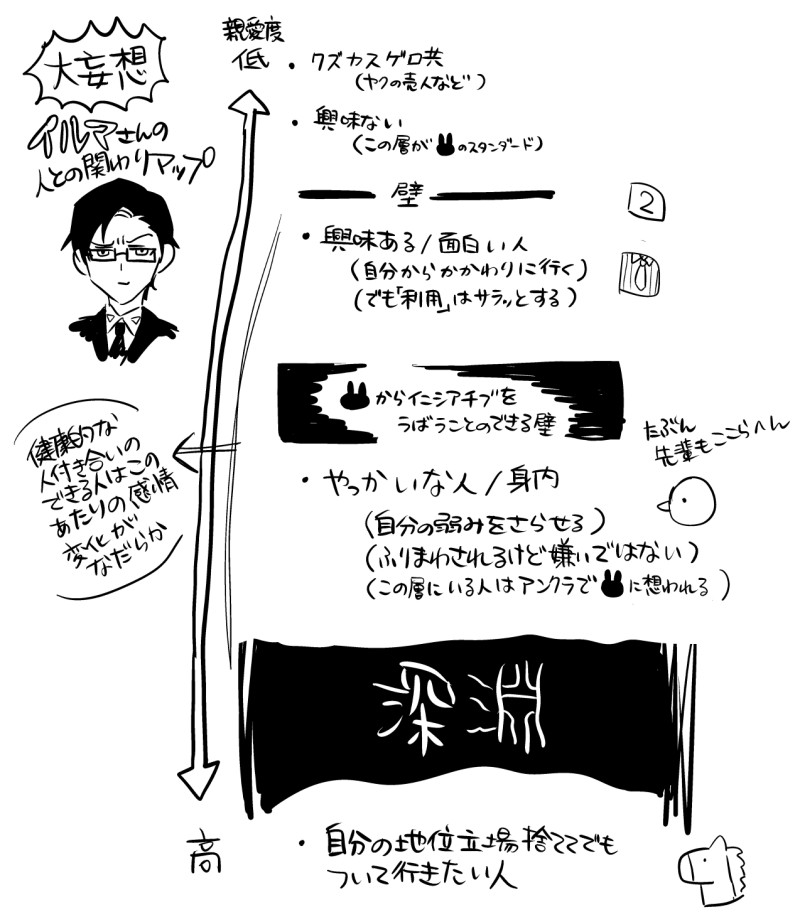 大妄想
イルマさんの
人との関わりマップ
親愛度
低
・クズカスゲロ共
(ヤクの売人など)
・興味ない
(この層がのスタンダード)
壁
2
・興味ある/面白い人
(自分からかかわりに行く)
(でも「利用」はサラッとする)
からイニシアチブを
うばうことのできる壁
健劇的な
人付き合いの
できる人はこの
あたりの感情
変化が
なだらか
たぶん
先輩もここらへん
・やっかいな人/身内
(自分の弱みをさらせる)
(ふりまわされるけど嫌いではない)
(この層にいる人はアンクラでに想われる)
高
・自分の地位立場捨ててでも
ついて行きたい人